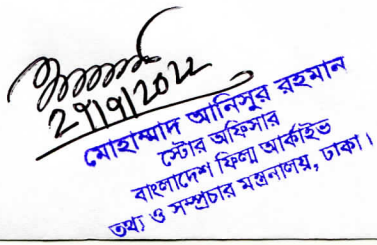 মোহাম্মাদ আনিসুর রহমান
স্টোর অফিসার
বাংলাদেশ ফিল্ম আর্কাইভ
তথ্য ও সম্প্রচার মন্ত্রনালয়, ঢাকা।